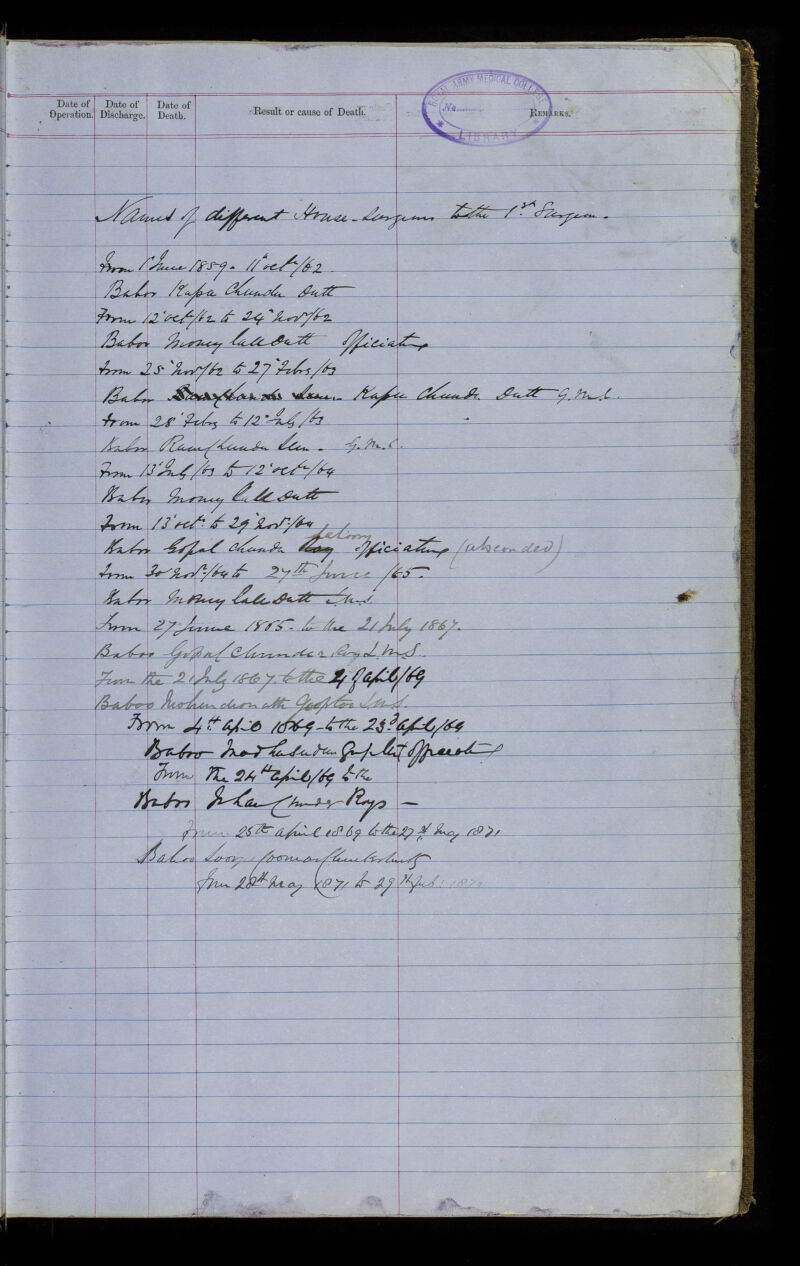 Date of Operation. Date of Discharge. Date of Death. Result or cause of Death. Remarks.
ROYAL ARMY MEDICAL COLLEGE
No.
LIBRARY
Names of different House-Surgeons to the 1st Surgeon.
From 1 June 1859. 11 Octr/62.
Baboo Kapa Chunder Dutt
From 12 Octr/62 to 24 Novr/62
Baboo Money Lall Dutt officiating
From 25 Novr/62 to 27 Feby/63
Baboo Kapa Chunder Dutt G.M.C.
From 28 Feby to 12 July/63
Baboo Ram Chunder Sen. G.M.C.
From 13 July/63 to 12 Octr/64
Baboo Money Lall Dutt
From 13 Octr. to 29 Novr./64
Baboo Gopal Chunder Roy officiating (absconded)
From 30 Novr./64 to 27th June /65.
Baboo Money Lall Dutt L.M.S.
From 27 June 1865. to the 21 July 1867.
Baboo Gopal Chunder Roy L.M.S.
From the 21 July 1867 to the 4 of April/69
Baboo Mohendronath Gooptoo L.M.S.
From 4th April 1869 to the 23d April/69
Baboo Madhusudan Gupta officiating
From the 24th April/69 to the
Baboo Ishan Chunder Roy —
From 25th April 1869 to the 27th May 1871
Baboo Coomar
From 28th May 1871 to 29th